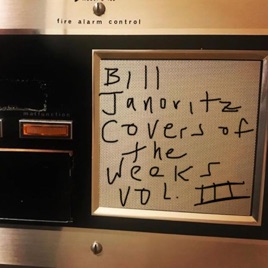 fire alarm control
malfunction
Bill
Janovitz
Covers of
the
Weeks
VOL. III